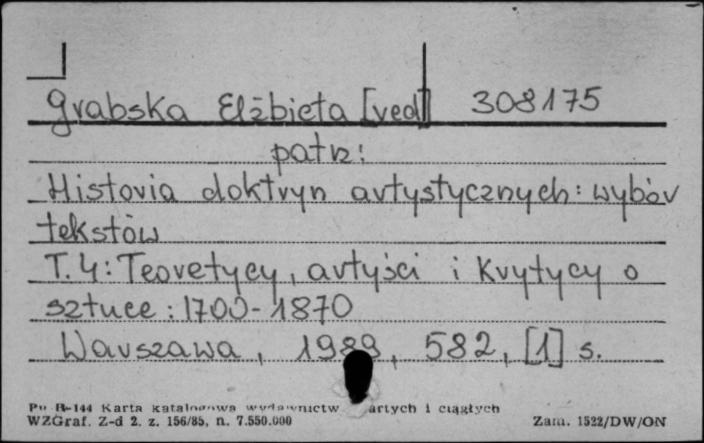 Grabska Elżbieta [red] 308175
patrz:
Historia doktryn artystycznych: wybór
tekstów
T. 4: Teoretycy, artyści i krytycy o
sztuce: 1700-1870
Warszawa, 1989, 582, [1] s.
Pu B-144 Karta katalogowa wydawnictw artych i ciągłych
WZGraf. Z-d 2. z. 156/85, n. 7.550.000 Zam. 1522/DW/ON